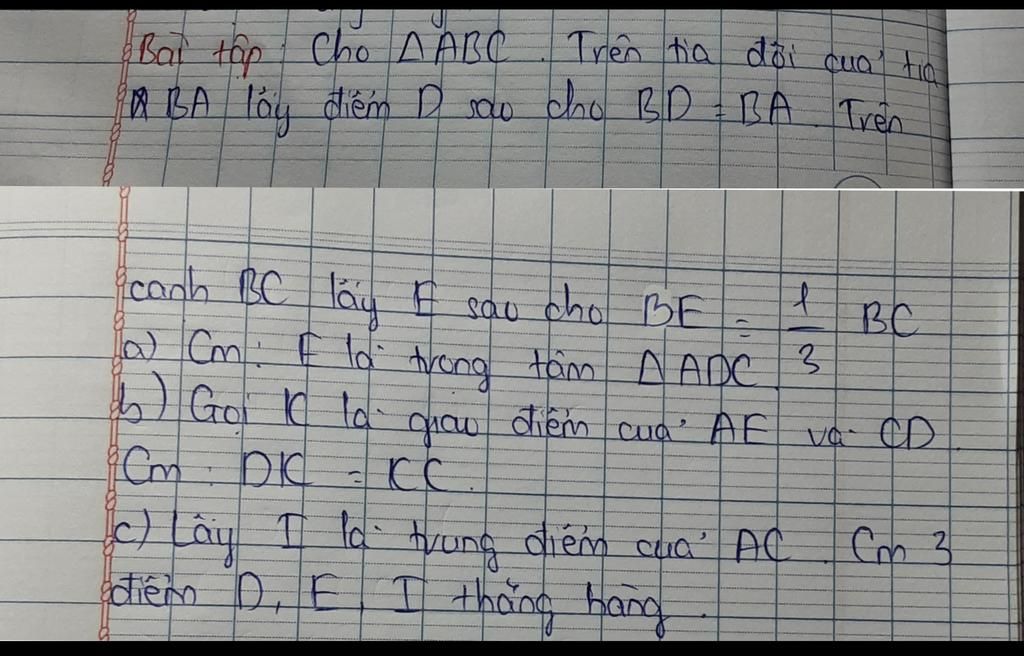 Bài tập: Cho ΔABC. Trên tia đối của tia
BA lấy điểm D sao cho BD = BA. Trên
cạnh BC lấy E sao cho BE = 1/3 BC
a) Cm: E là trọng tâm ΔADC.
b) Gọi K là giao điểm của AE và CD.
Cm: DK = KC.
c) Lấy I là trung điểm của AC. Cm 3
điểm D, E, I thẳng hàng.